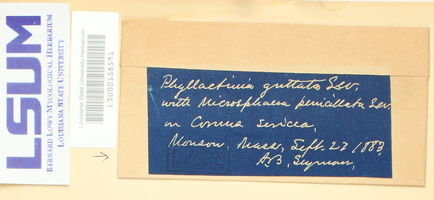 LSUM
BERNARD LOWY MYCOLOGICAL HERBARIUM
LOUISIANA STATE UNIVERSITY
Louisiana State University Herbarium
LSU00158591
Phyllactinia guttata Lev.
with Microsphaera penicillata Lev.
on Cornus sericea,
Monson, Mass, Sept. 27 1883
A.B. Seymour,